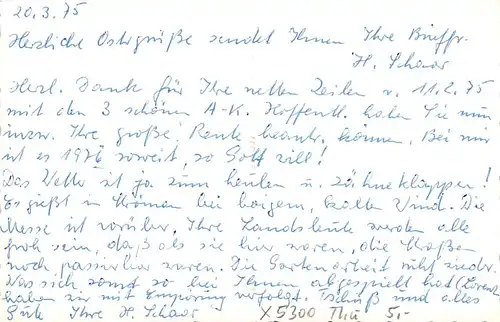 20.3.75
Herzliche Ostergrüße sendet Ihnen Ihre Brieffr.
H. Schaar
Herzl. Dank für Ihre netten Zeilen v. 11.2.75
mit den 3 schönen A-K. Hoffentl. haben Sie nun
inzw. Ihre große Rente beantr. können, Bei mir
ist es 1976 soweit, so Gott will!
Das Wetter ist ja zum heulen u. zähneklappen!
Es gießt in Strömen bei böigem, kalten Wind. Die
Messe ist vorüber, Ihre Landsleute werden alle
froh sein, daß als sie hier waren, die Straßen
noch passierbar waren. Die Gartenarbeit ruht wieder.
Was sich sonst so bei Ihnen abgespielt hat (Lorenz
haben wir mit Empörung verfolgt. Tschüß und alles
Gute Ihre H. Schaar X5300 5,-